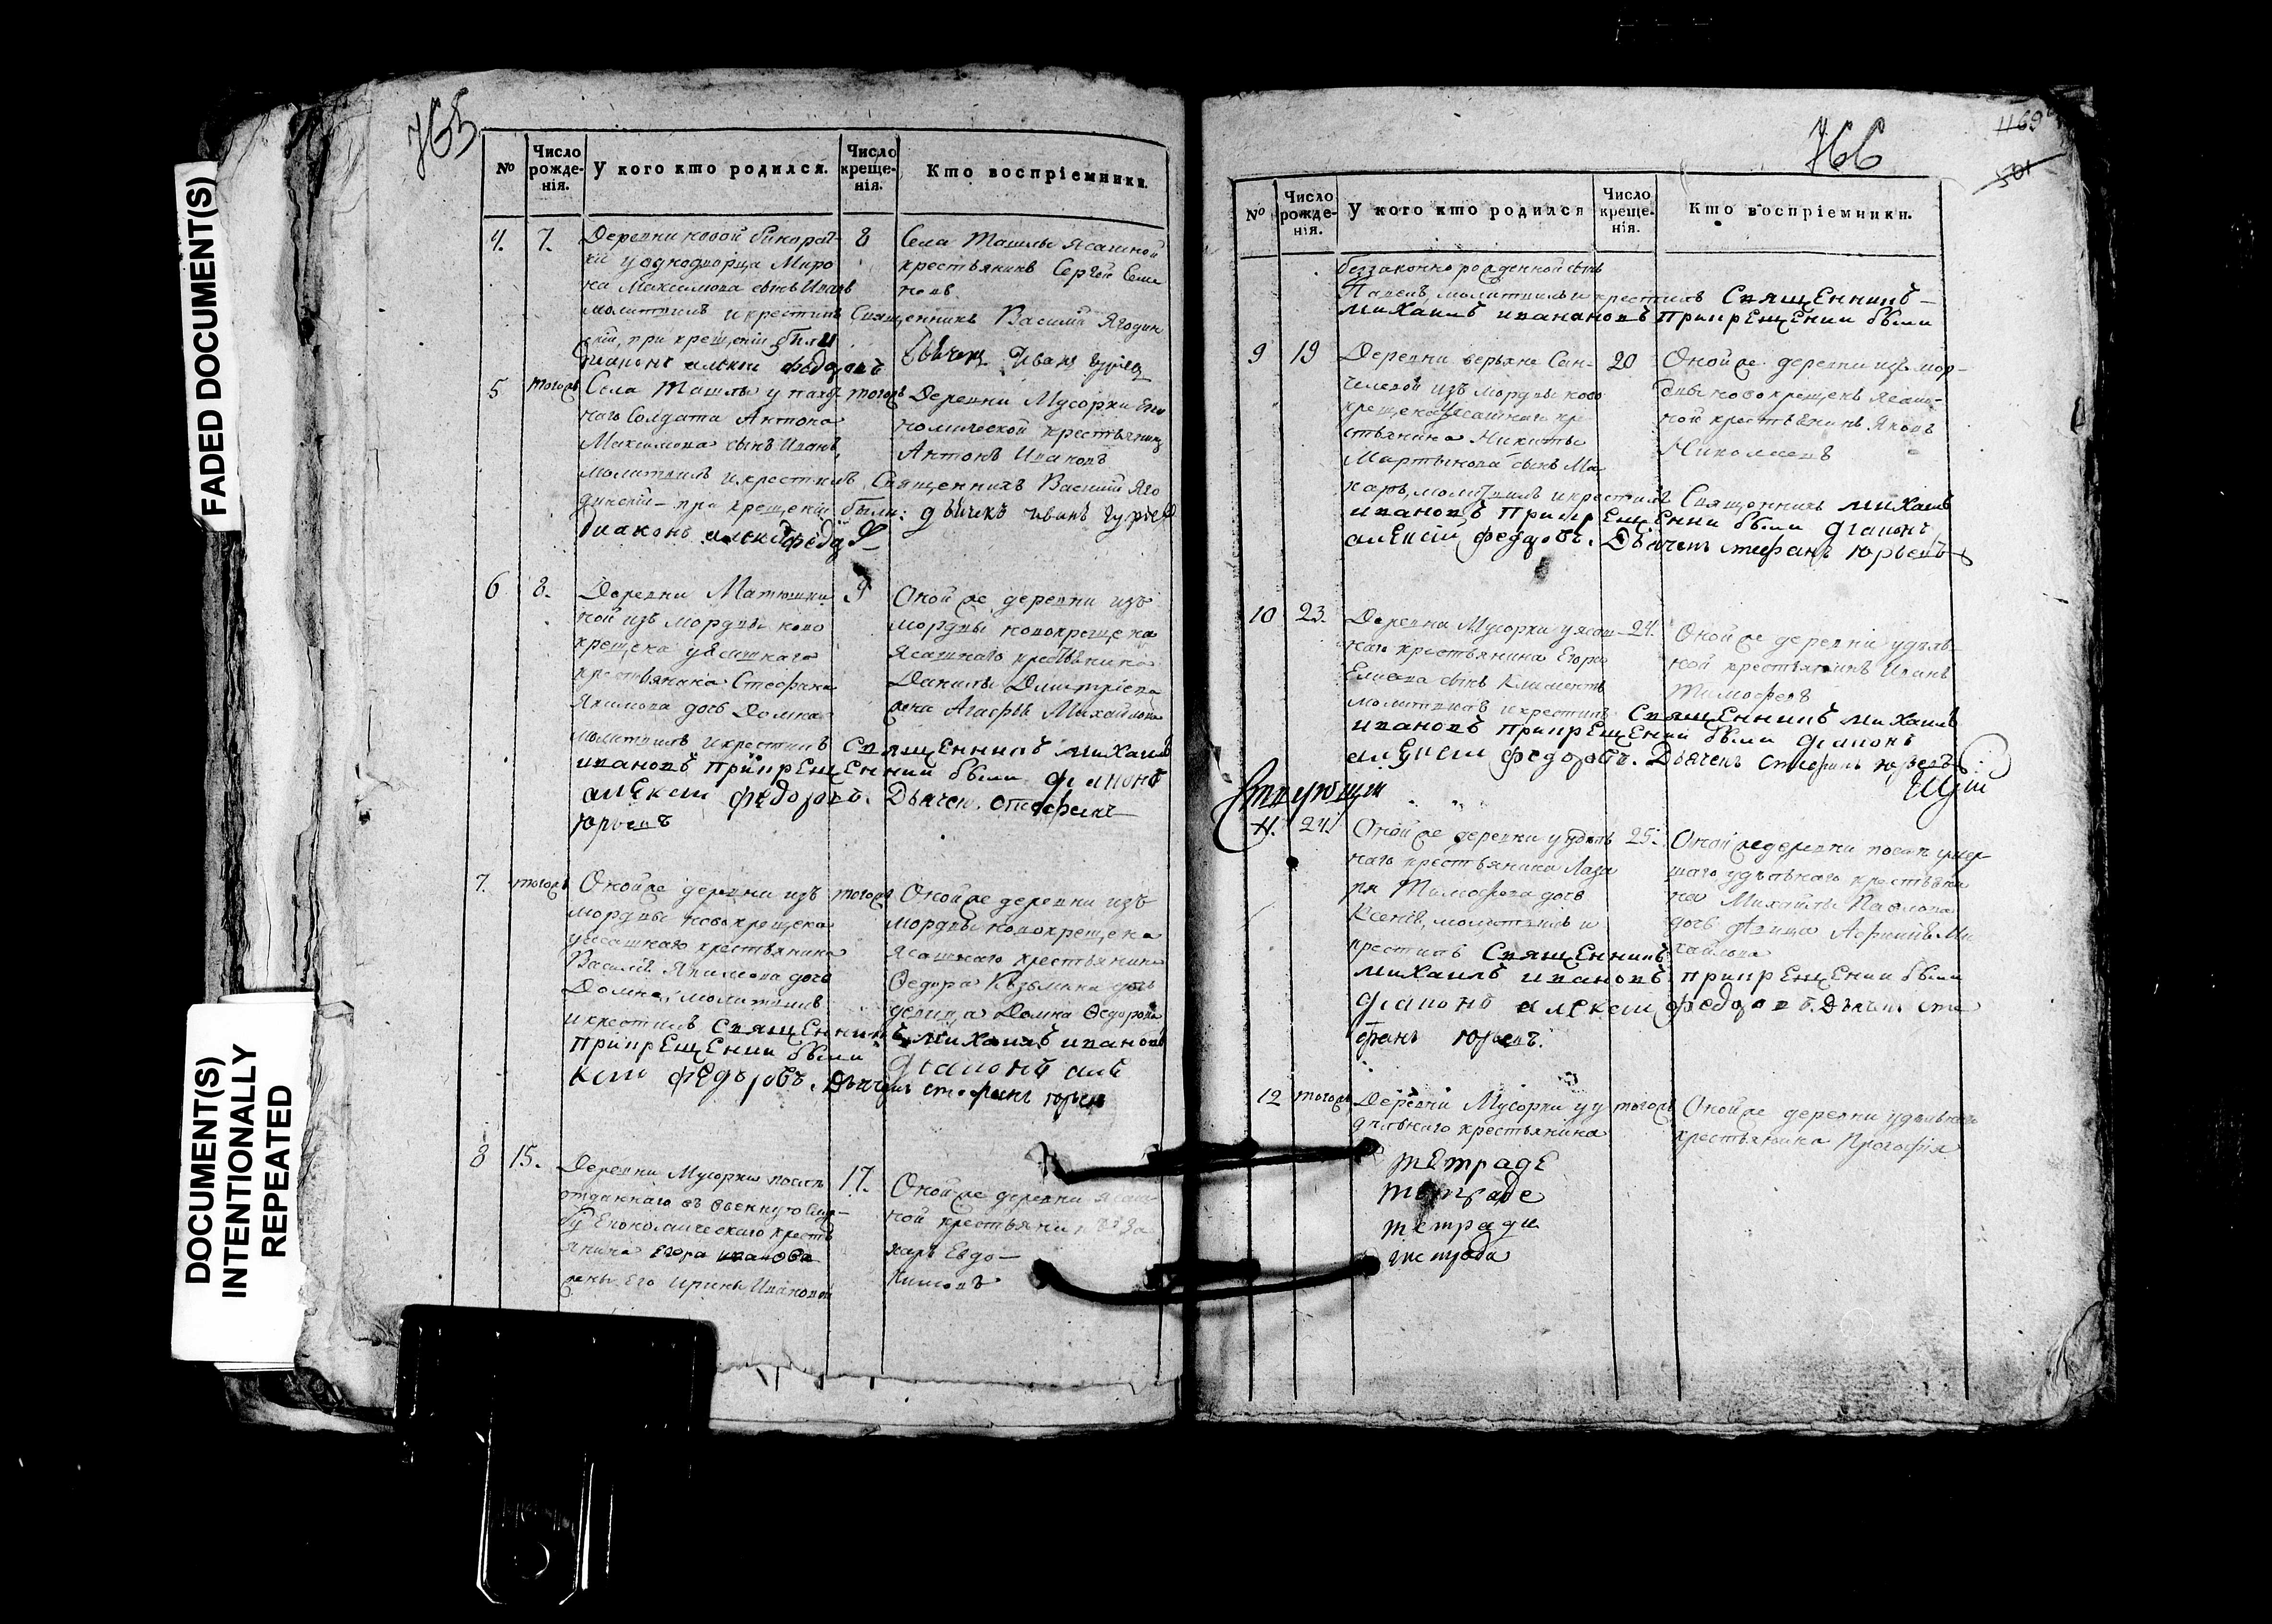 FADED DOCUMENT(S)
DOCUMENT(S)
INTENTIONALLY
REPEATED
765
№
Число рожде-нія.
У кого кто родился.
Число креще-нія.
Кто воспріемники.
4. 7. Деревни новой
у однодворца Миро
на Максимова сынъ Иванъ
молитвилъ и крестилъ Священникъ Василій Ягодин
скій, при крещеніи были
діаконъ алексей федоровъ
8 Села Ташлы Ясашной
крестьянинъ Сергей Семе
новъ.
дьячекъ Иванъ Гурьевъ
5 тогожъ Села Ташлы у
наго Солдата Антона
Максимова сынъ Иванъ,
молитвилъ и крестилъ Священникъ Василій Яго
динскій – при крещеніи были: дьячекъ иванъ гурьевъ
діаконъ алексей
тогожъ Деревни Мусорки Еко
номической крестьянинъ
Антонъ Ивановъ
6 8. Деревни Матюшки
ной изъ мордвы ново
крещена уясашнаго
крестьянина Стефана
Якимова дочь Домна
молитвилъ и крестилъ Священникъ михаилъ
ивановъ припрещении были діяконъ
алексеи федоровъ. Дьячек. Стефанъ
юрьевъ
9 Оной же деревни изъ
мордвы новокрещена
Ясашнаго крестьянина
Данилы Дмитріева
жена Агафья Михайлова
7. тогожъ Оной же деревни изъ
мордвы новокрещена
уясашнаго крестьянина
Василья Якимова дочь
Домна, молитвилъ
и крестилъ Священникъ михаилъ иванов
припрещении были діяконъ але
ксеи федоровъ. Дьячекъ стефанъ юрьев
тогожъ Оной же деревни изъ
мордвы новокрещена
Ясашнаго крестьянина
Федора Кузьмина дочь
девица Домна Федорова
8 15. Деревни Мусорки после
отданнаго въ военную служ-
бу Економическаго кресть
янина Егора иванова
жены его Ирины Ивановой
17. Оной же деревни ясаш
ной крестьянинъ За
харъ Евдо-
кимовъ
766
1169
501
№
Число рожде-нія.
У кого кто родился
Число креще-нія.
Кто воспріемники.
беззаконнорожденной сынъ
Павелъ, молитвилъ и крестилъ Священникъ
михаилъ ивановъ припрещении были
9 19 Деревни верьхне Сан-
челеевой изъ мордвы ново
крещена уясашнаго кре
стьянина Никиты
Мартынова сынъ Ма
каръ, молитвилъ и крестилъ Священникъ михаилъ
ивановъ припрещении были діяконъ
алексій федоровъ. Дьячекъ стефанъ юрьевъ
20 Оной же деревни изъ мор-
двы новокрещенъ Ясаш-
ной крестьянинъ Яковъ
Николаевъ
10 23. Деревни Мусорки уясаш
наго крестьянина Егора
Елисева сынъ Климентъ
молитвилъ и крестилъ Священникъ михаилъ
ивановъ припрещении были діяконъ
алексеи федоровъ. Дьячекъ стефанъ юрьевъ
24. Оной же деревни удель
ной крестьянинъ Иванъ
Тимофеевъ
11. 24. Оной же деревни уудель
наго крестьянина Лаза
ря Тимофева дочь
Ксенія, молитвилъ и
крестилъ Священникъ
михаилъ ивановъ припрещении были
діяконъ алексеи федоровъ. Дьячекъ сте
фанъ юрьевъ.
25. Оной же деревни после умер
шаго удельнаго крестьяни
на Михайлы Павлова
дочь девица Афимья Ми
хайлова
12 тогожъ Деревни Мусорки у у
дельнаго крестьянина
тогожъ Оной же деревни удельнаго
крестьянина Прокофія
тетраде
тетраде
тетради
тетрада